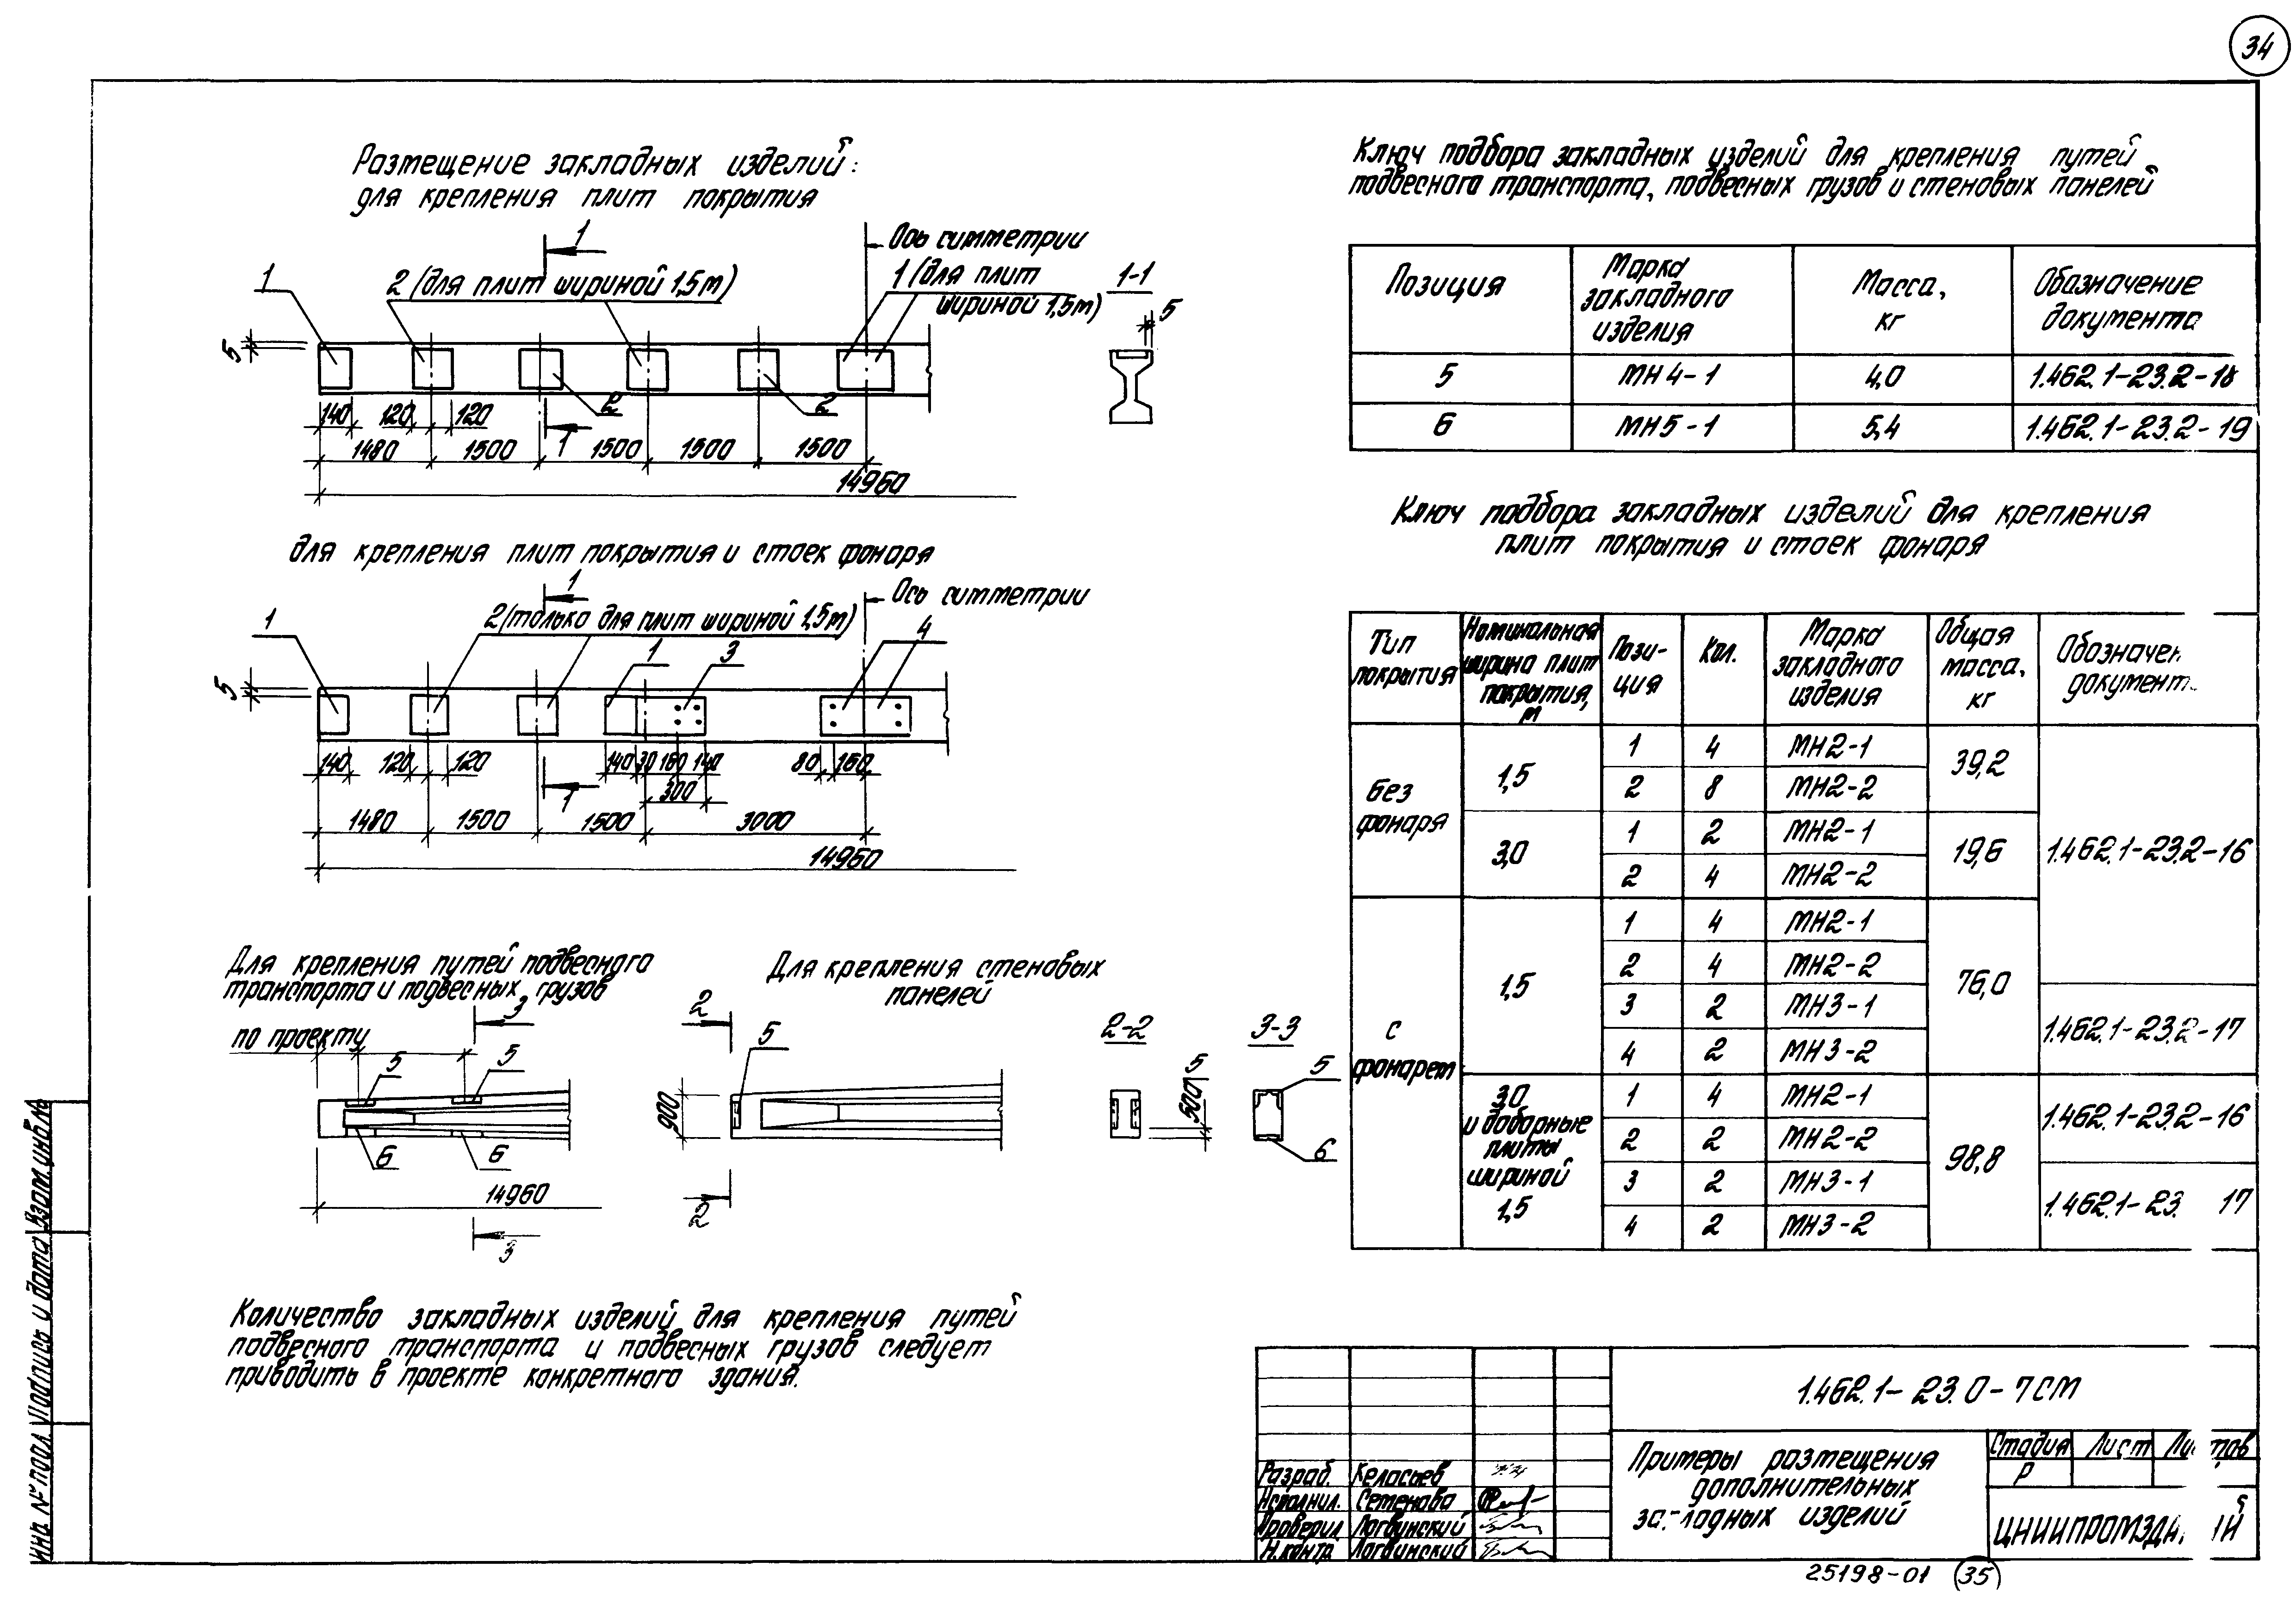 34
Размещение закладных изделий:
для крепления плит покрытия
1
Ось симметрии
1
2 (для плит шириной 1,5м)
1 (для плит
шириной 1,5м)
1-1
5
5
2
2
140
120
120
1
1480
1500
1500
1500
1500
14960
для крепления плит покрытия и стоек фонаря
1
Ось симметрии
1
2 (только для плит шириной 1,5м)
1
3
4
5
140
120
120
140
30
160
140
80
160
300
1
1480
1500
1500
3000
14960
Для крепления путей подвесного
транспорта и подвесных грузов
3
по проекту
5
5
6
6
14960
3
Для крепления стеновых
панелей
2
5
900
2
2-2
5
500
3-3
5
6
Количество закладных изделий для крепления путей
подвесного транспорта и подвесных грузов следует
приводить в проекте конкретного здания.
Ключ подбора закладных изделий для крепления путей
подвесного транспорта, подвесных грузов и стеновых панелей
Позиция
Марка закладного изделия
Масса, кг
Обозначение документа
5 МН4-1 4,0 1.462.1-23.2-18
6 МН5-1 5,4 1.462.1-23.2-19
Ключ подбора закладных изделий для крепления
плит покрытия и стоек фонаря
Тип покрытия
Номинальная ширина плит покрытия, м
Пози-ция
Кол.
Марка закладного изделия
Общая масса, кг
Обозначен документ
Без фонаря
1,5
1 4 МН2-1
39,2
2 8 МН2-2
3,0
1 2 МН2-1
19,6
1.462.1-23.2-16
2 4 МН2-2
с фонарем
1,5
1 4 МН2-1
2 4 МН2-2
76,0
3 2 МН3-1
1.462.1-23.2-17
4 2 МН3-2
3,0
и доборные
плиты
шириной
1,5
1 4 МН2-1
1.462.1-23.2-16
2 2 МН2-2
98,8
3 2 МН3-1
1.462.1-23. 17
4 2 МН3-2
1.462.1-23.0-7СМ
Примеры размещения
дополнительных
закладных изделий
Стадия Лист
Р
Разраб. Келасьев
Исполнил. Семенова
Проверил Логвинский
Н.контр. Логвинский
25198-01 35
Инв № подл. Подпись и дата Взам.инв.№